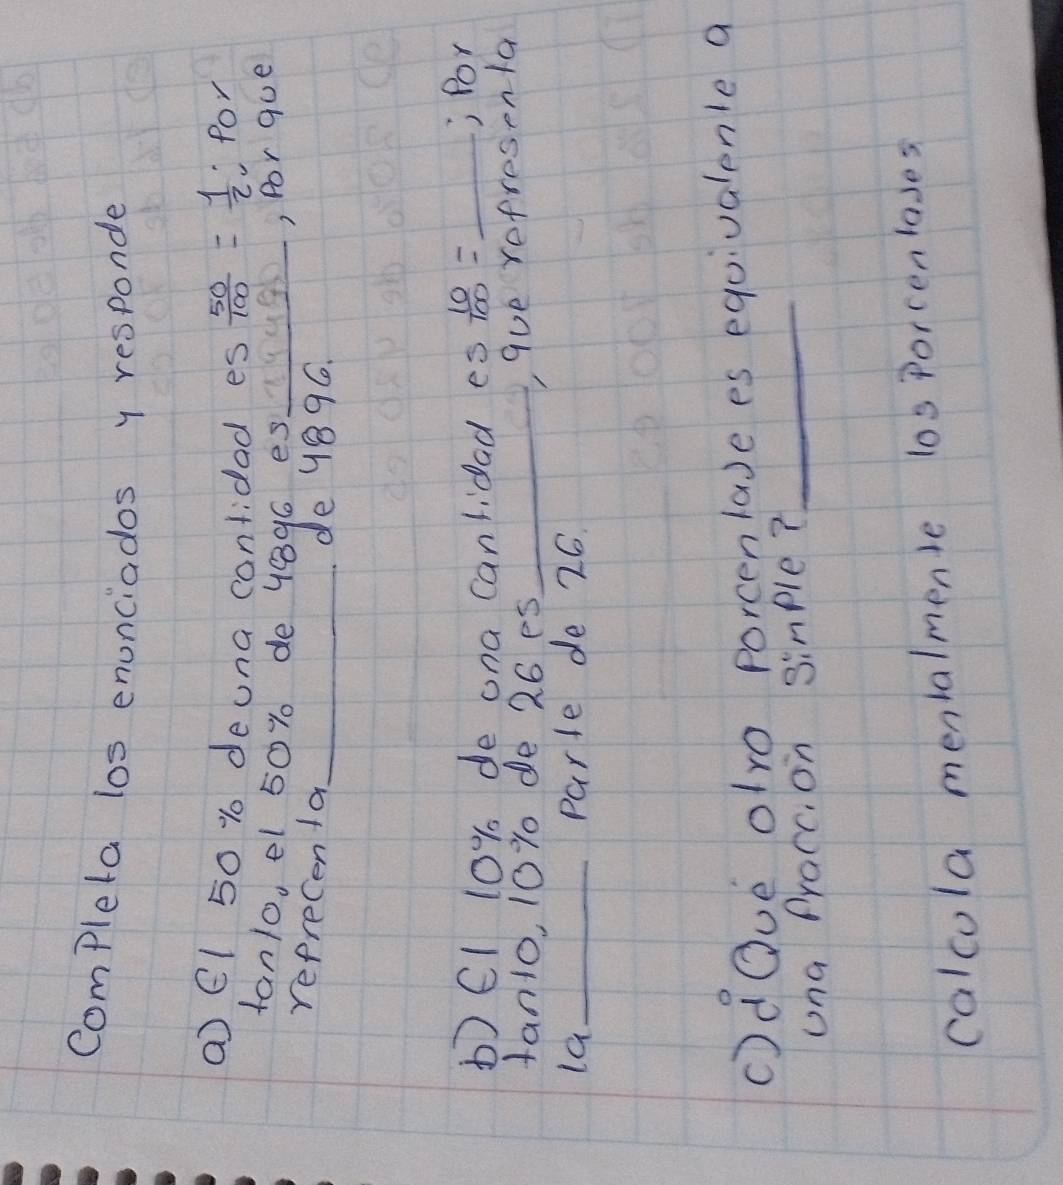 Completa los enunciados y responde
a) El 50% de una cantidad es 50/100 = 1/2. Por
tanto, el 50% de 4896 es ______, Por que
reprecenta ______ de 4896.
b) El 10% de una cantidad es 10/100 = ____; Por
tanto, 10% de 26 es ______, que representa
la ______ Parte de 26.
c) ¿Qué otro Porcentaje es equivalente a
una fracción Simple? ______
Calcula mentalmente los Porcentajes